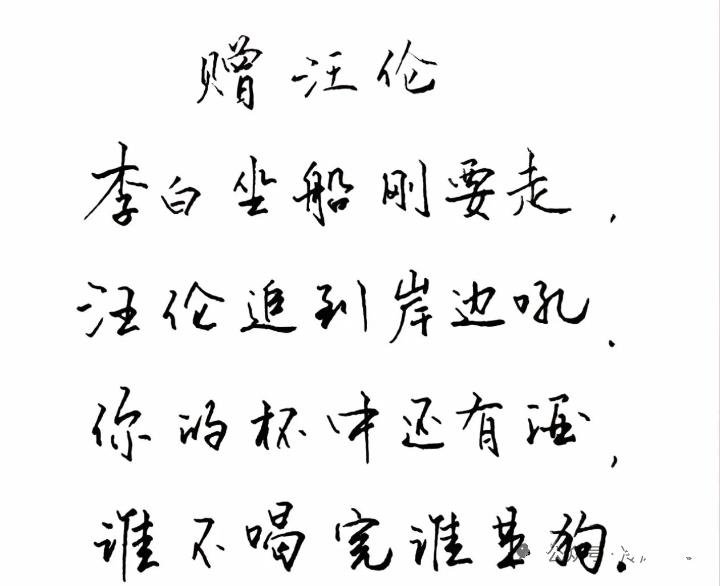 赠汪伦
李白坐船刚要走,
汪伦追到岸边吼.
你的杯中还有酒,
谁不喝完谁是狗.
公众号